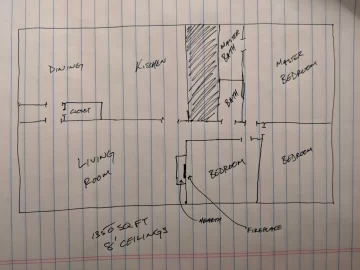 DINING
KITCHEN
MASTER
BATH
MASTER
BEDROOM
CLOSET
BATH
LIVING
ROOM
BEDROOM
BEDROOM
HEARTH
FIREPLACE
1350 SQ FT
8' CEILINGS